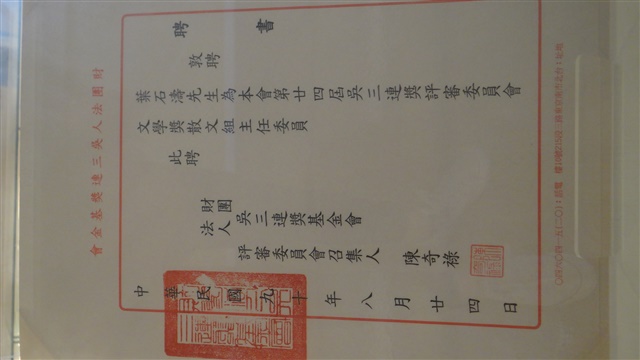 聘書
敦聘
葉石濤先生為本會第廿四屆吳三連獎評審委員會
文學獎散文組主任委員
此聘
財團法人吳三連獎基金會
評審委員會召集人 陳奇祿
中華民國九十年八月廿四日
財團法人吳三連獎基金會